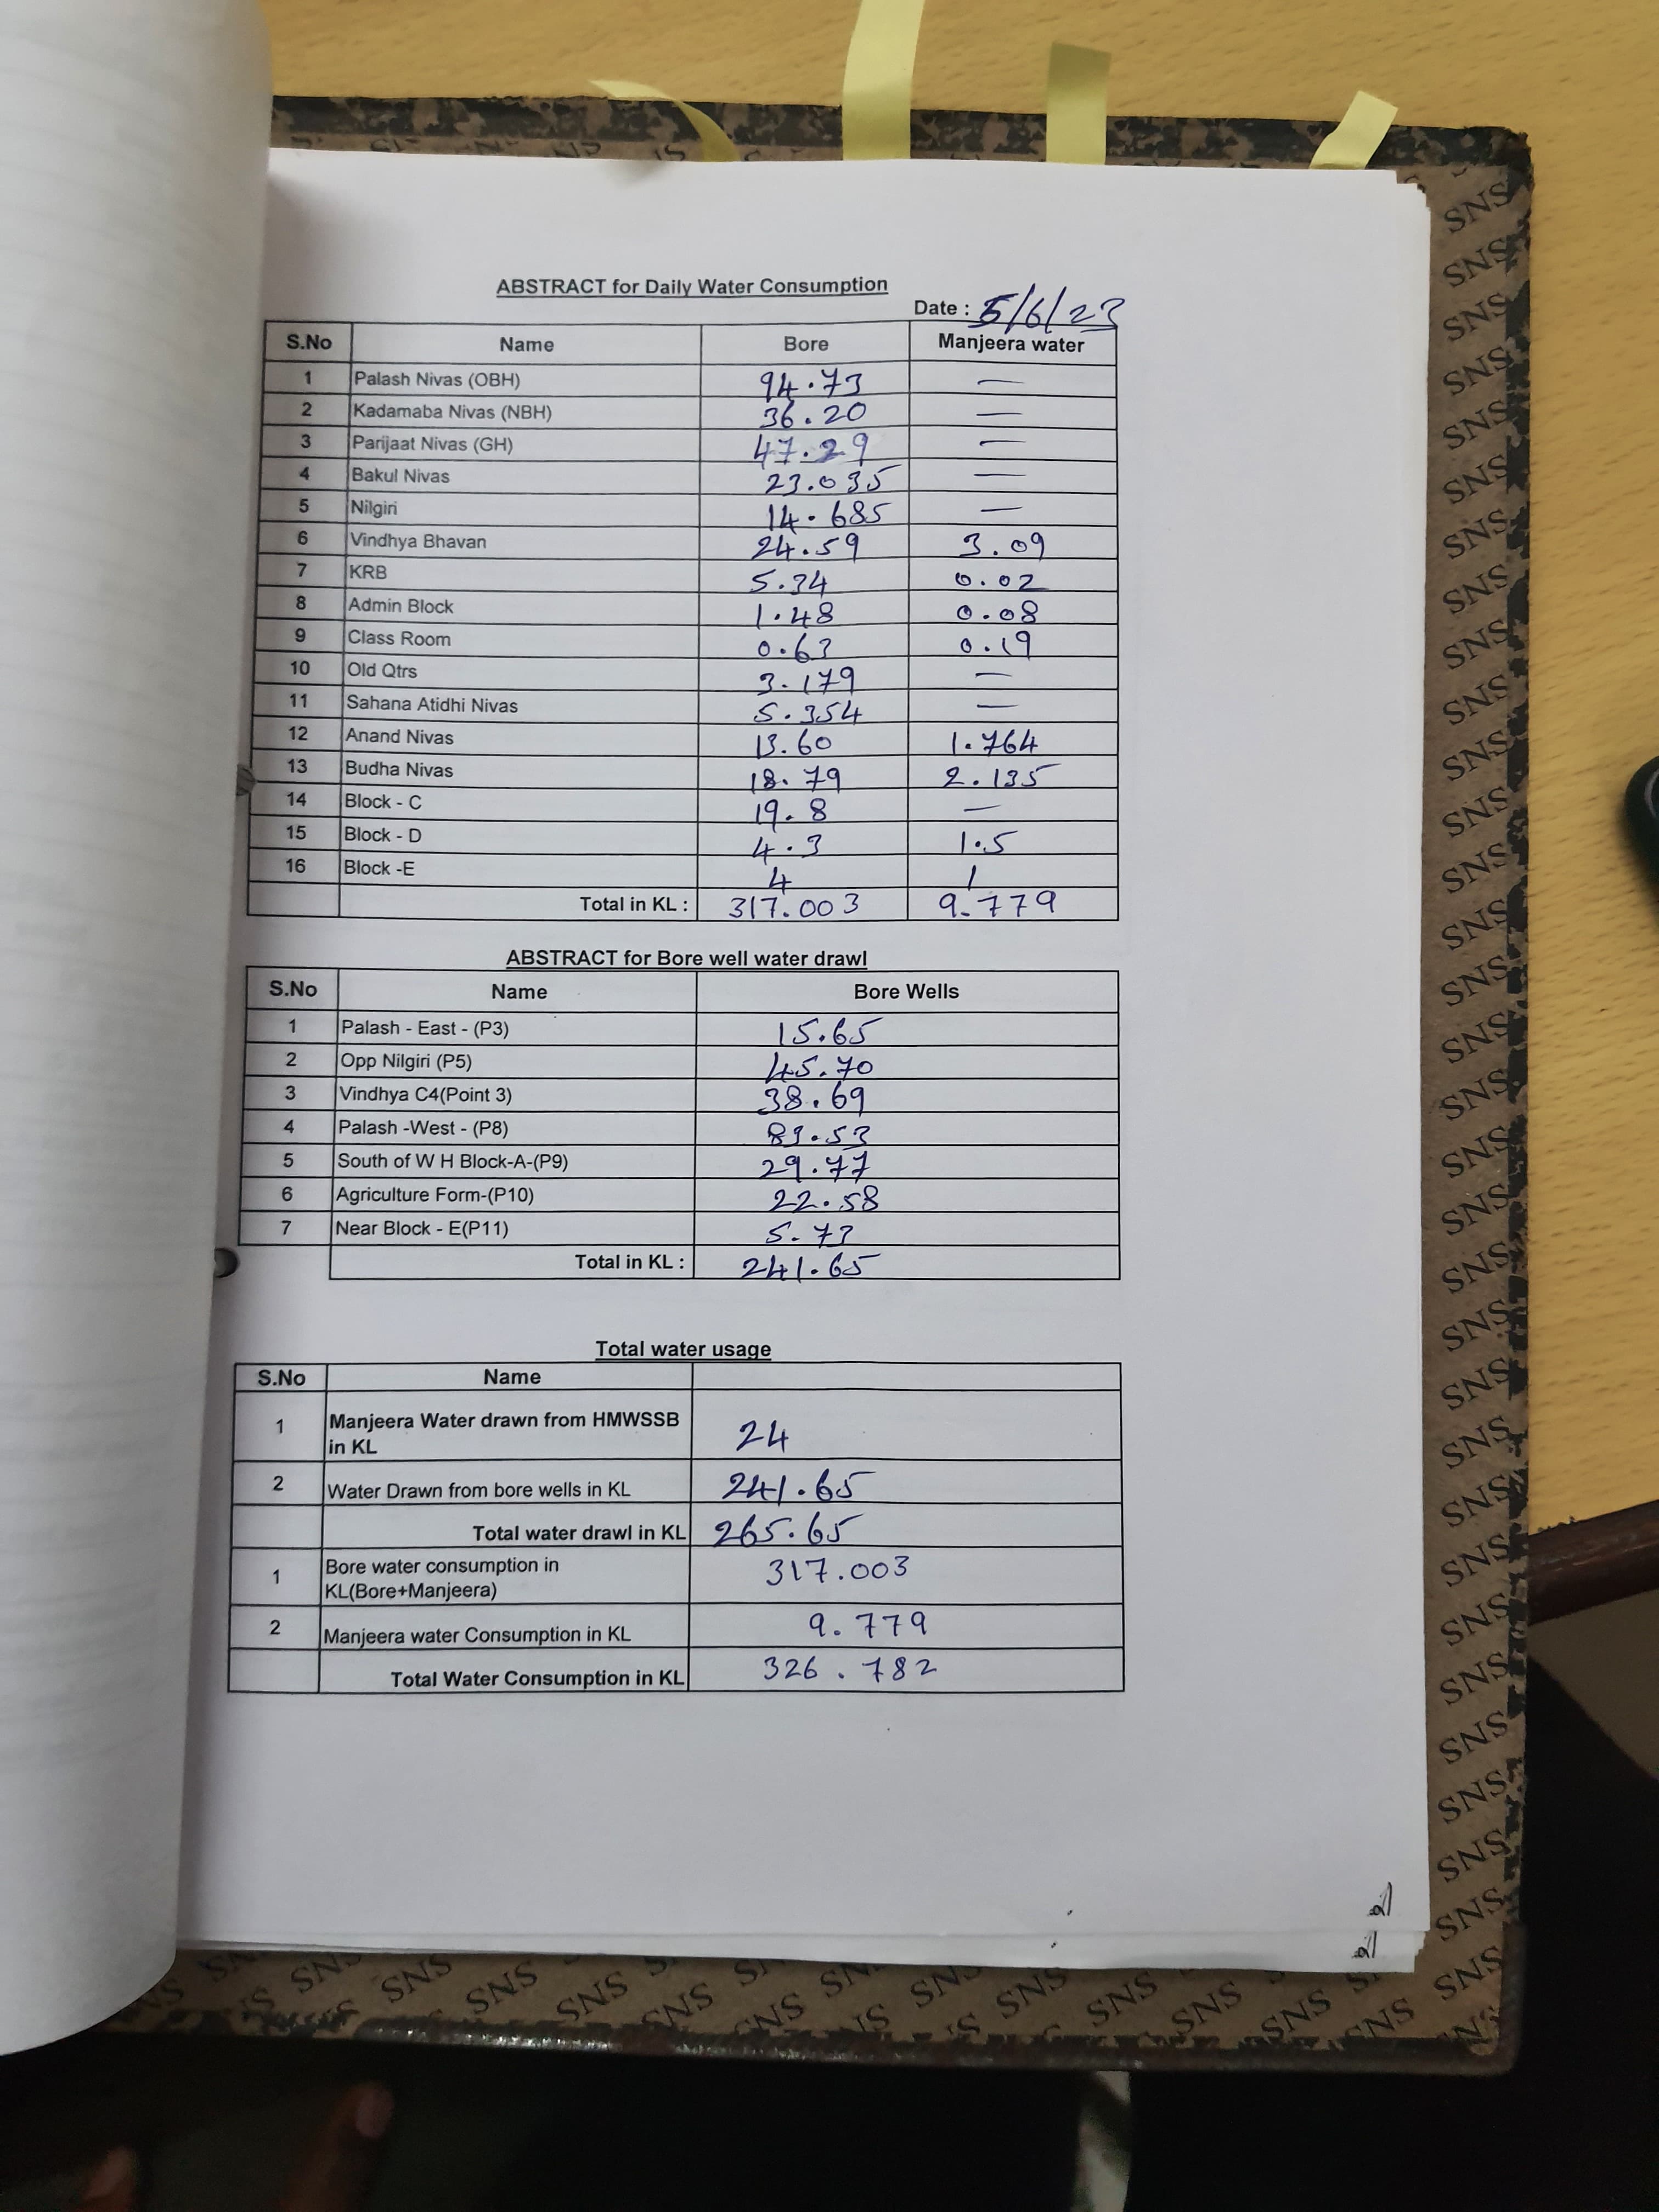 ABSTRACT for Daily Water Consumption
Date : 5/6/23
S.No Name Bore Manjeera water
1 Palash Nivas (OBH) 94.73 —
2 Kadamaba Nivas (NBH) 36.20 —
3 Parijaat Nivas (GH) 47.29 —
4 Bakul Nivas 23.035 —
5 Nilgiri 14.685 —
6 Vindhya Bhavan 24.59 3.09
7 KRB 5.34 0.02
8 Admin Block 1.48 0.08
9 Class Room 0.63 0.19
10 Old Qtrs 3.179 —
11 Sahana Atidhi Nivas 5.354 —
12 Anand Nivas 13.60 1.764
13 Budha Nivas 18.79 2.135
14 Block - C 19.8 —
15 Block - D 4.3 1.5
16 Block -E 4 1
Total in KL : 317.003 9.779
ABSTRACT for Bore well water drawl
S.No Name Bore Wells
1 Palash - East - (P3) 15.65
2 Opp Nilgiri (P5) 45.70
3 Vindhya C4(Point 3) 38.69
4 Palash -West - (P8) 83.53
5 South of W H Block-A-(P9) 29.77
6 Agriculture Form-(P10) 22.58
7 Near Block - E(P11) 5.73
Total in KL : 241.65
Total water usage
S.No Name
1 Manjeera Water drawn from HMWSSB
in KL 24
2 Water Drawn from bore wells in KL 241.65
Total water drawl in KL 265.65
1 Bore water consumption in
KL(Bore+Manjeera) 317.003
2 Manjeera water Consumption in KL 9.779
Total Water Consumption in KL 326.782